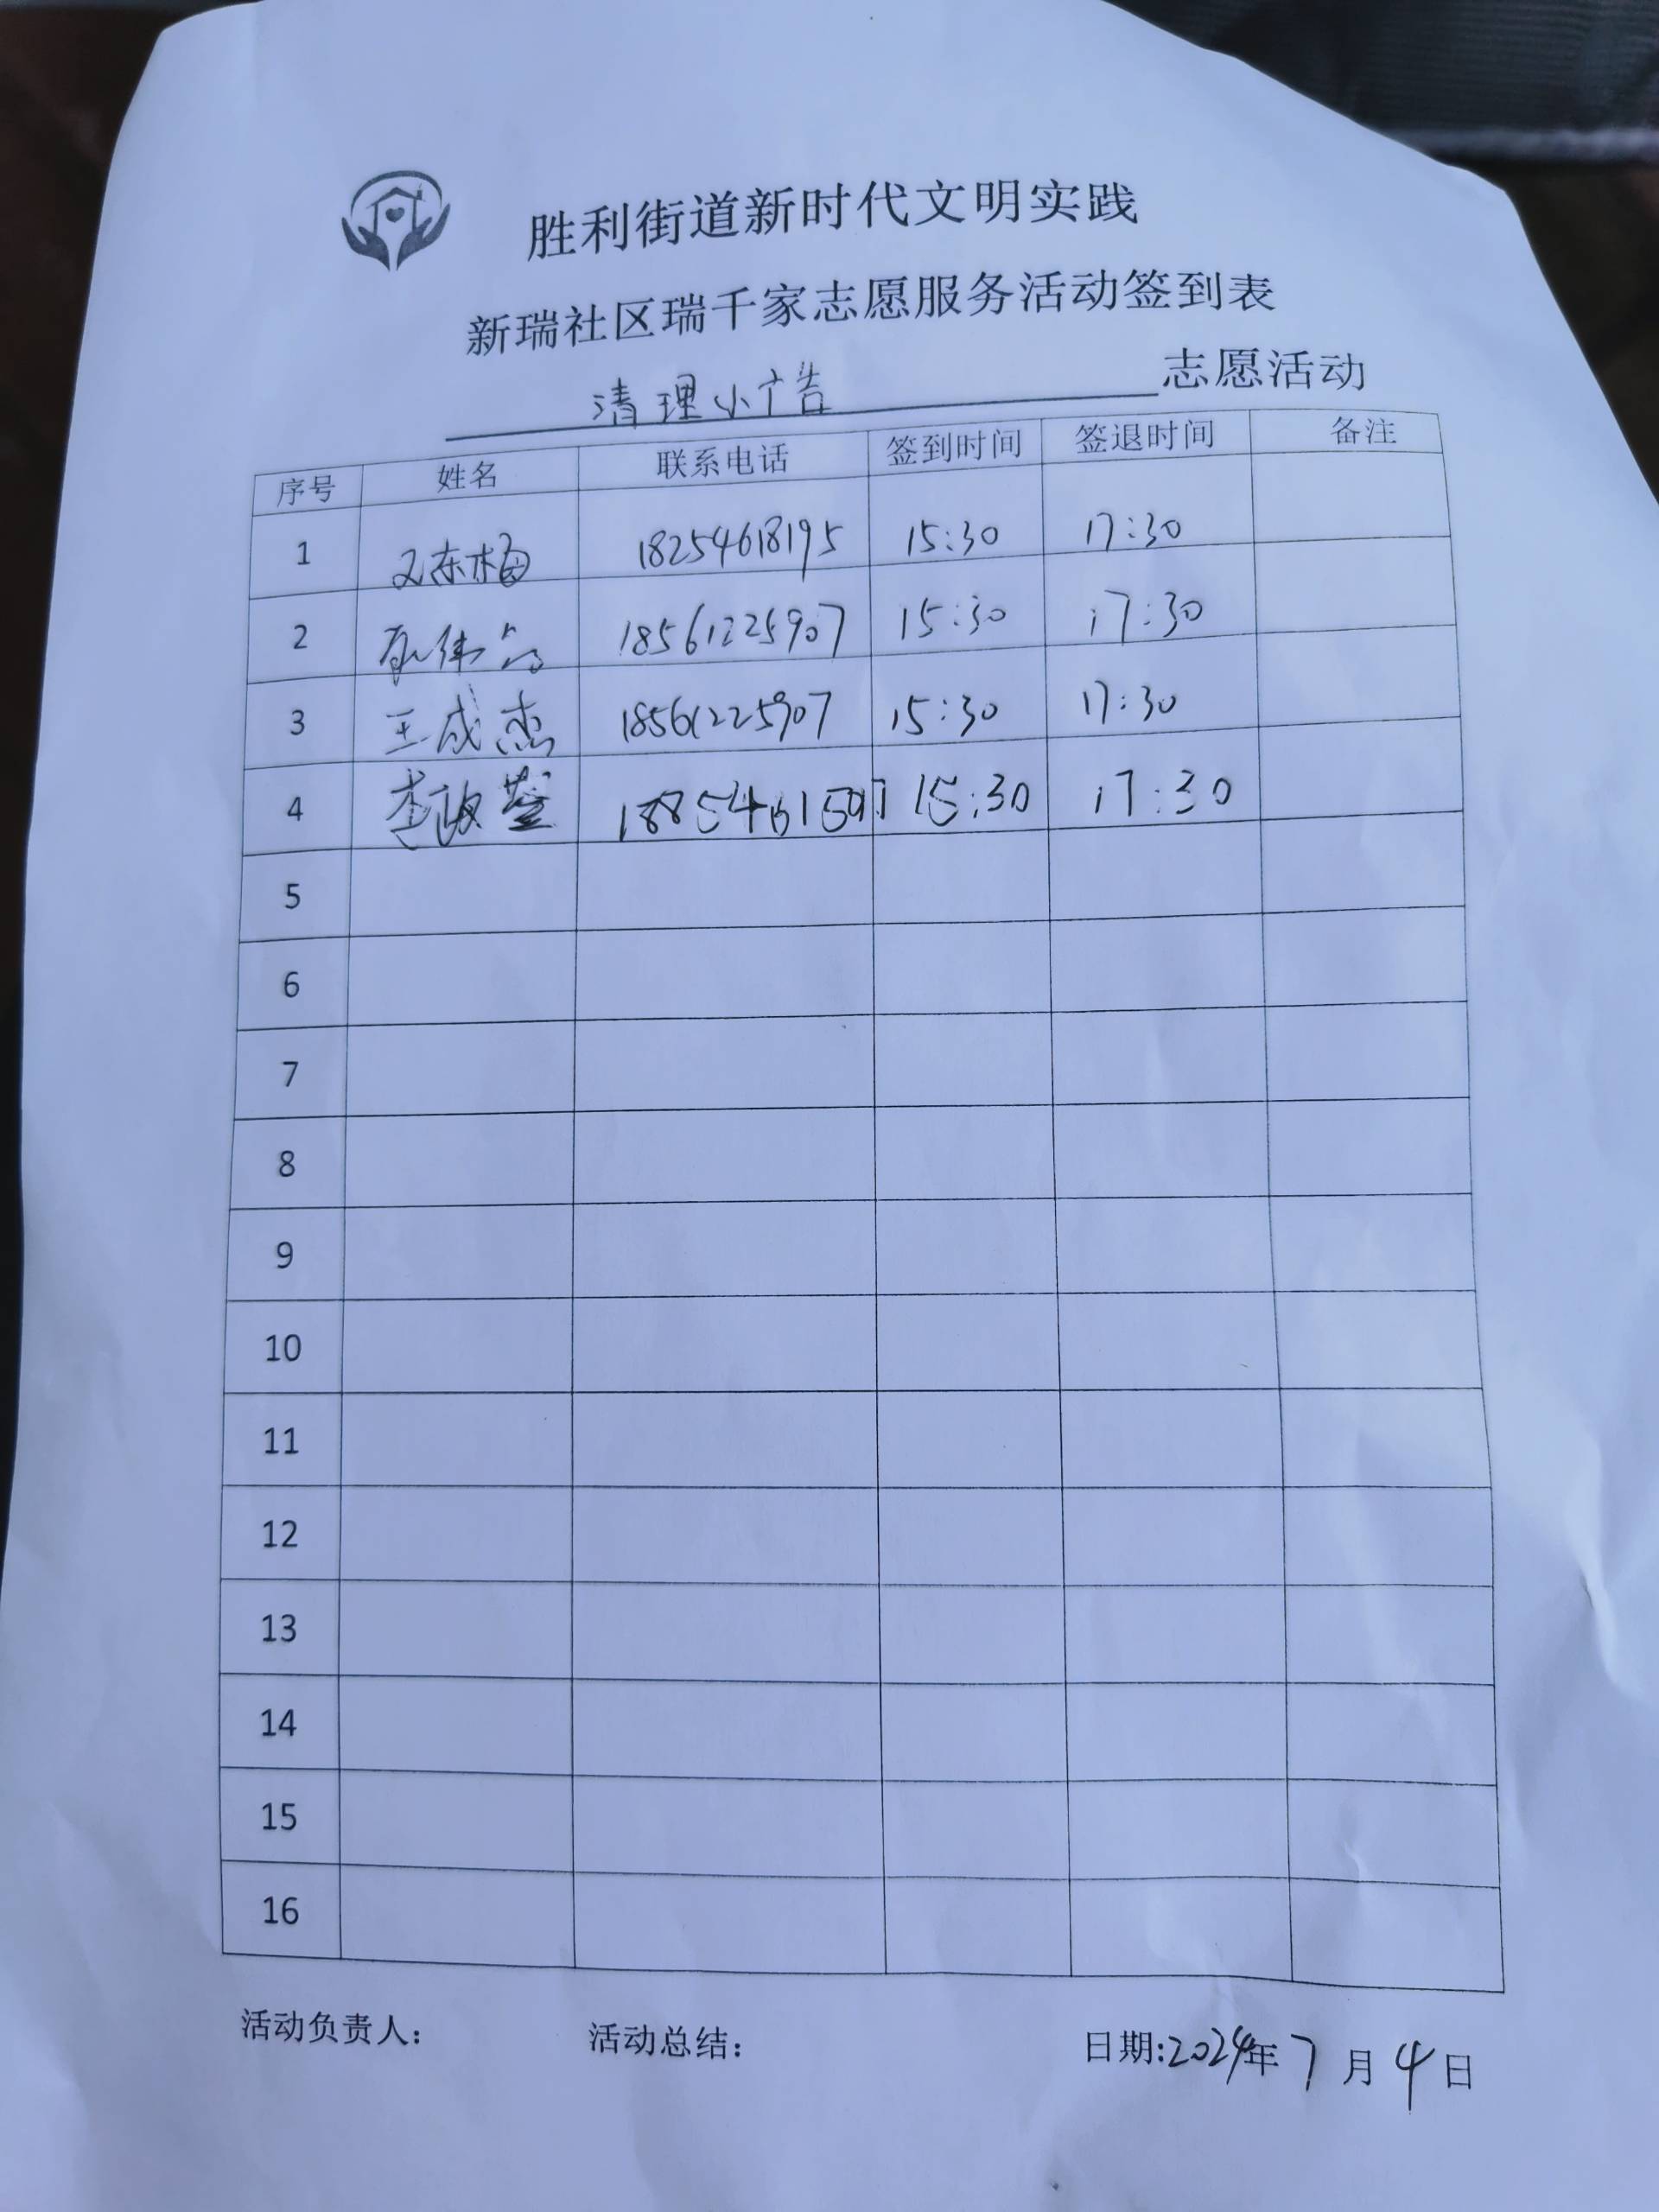 胜利街道新时代文明实践
新瑞社区瑞千家志愿服务活动签到表
清理小广告 志愿活动
序号 姓名 联系电话 签到时间 签退时间 备注
1 18254618195 15:30 17:30
2 18561225907 15:30 17:30
3 王成杰 18561225907 15:30 17:30
4 李政 15:30 17:30
5
6
7
8
9
10
11
12
13
14
15
16
活动负责人: 活动总结: 日期:2024年7月4日